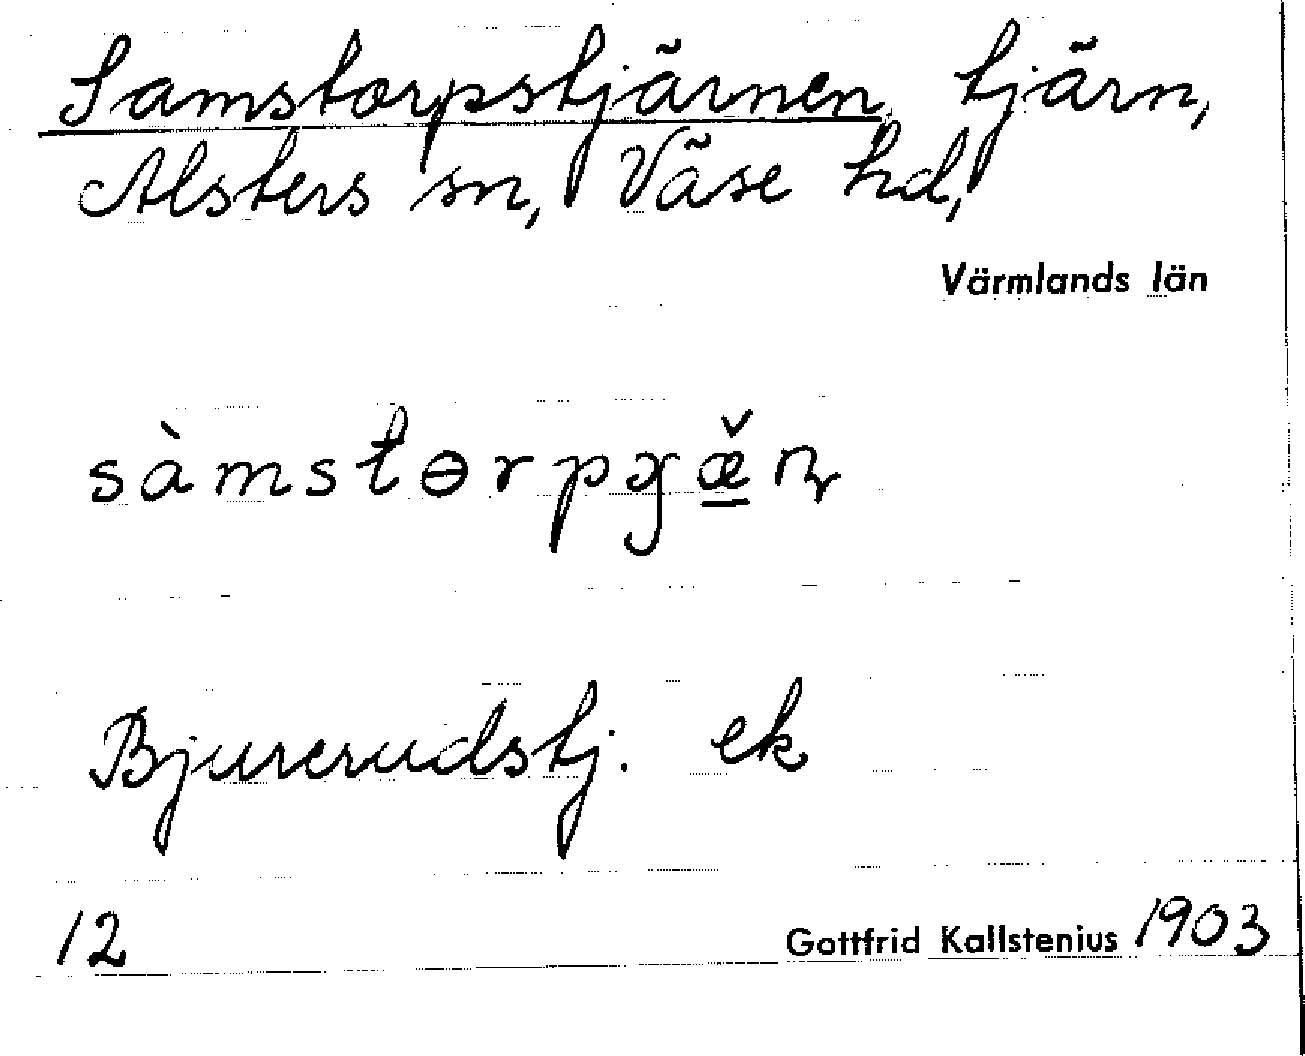 Samstorpstjärnen, tjärn,
Alsters sn, Väse hd,
Värmlands län
sàmstɵrpɣæ̲̌ɳ
Bjurerudstj. ek
12 Gottfrid Kallstenius 1903